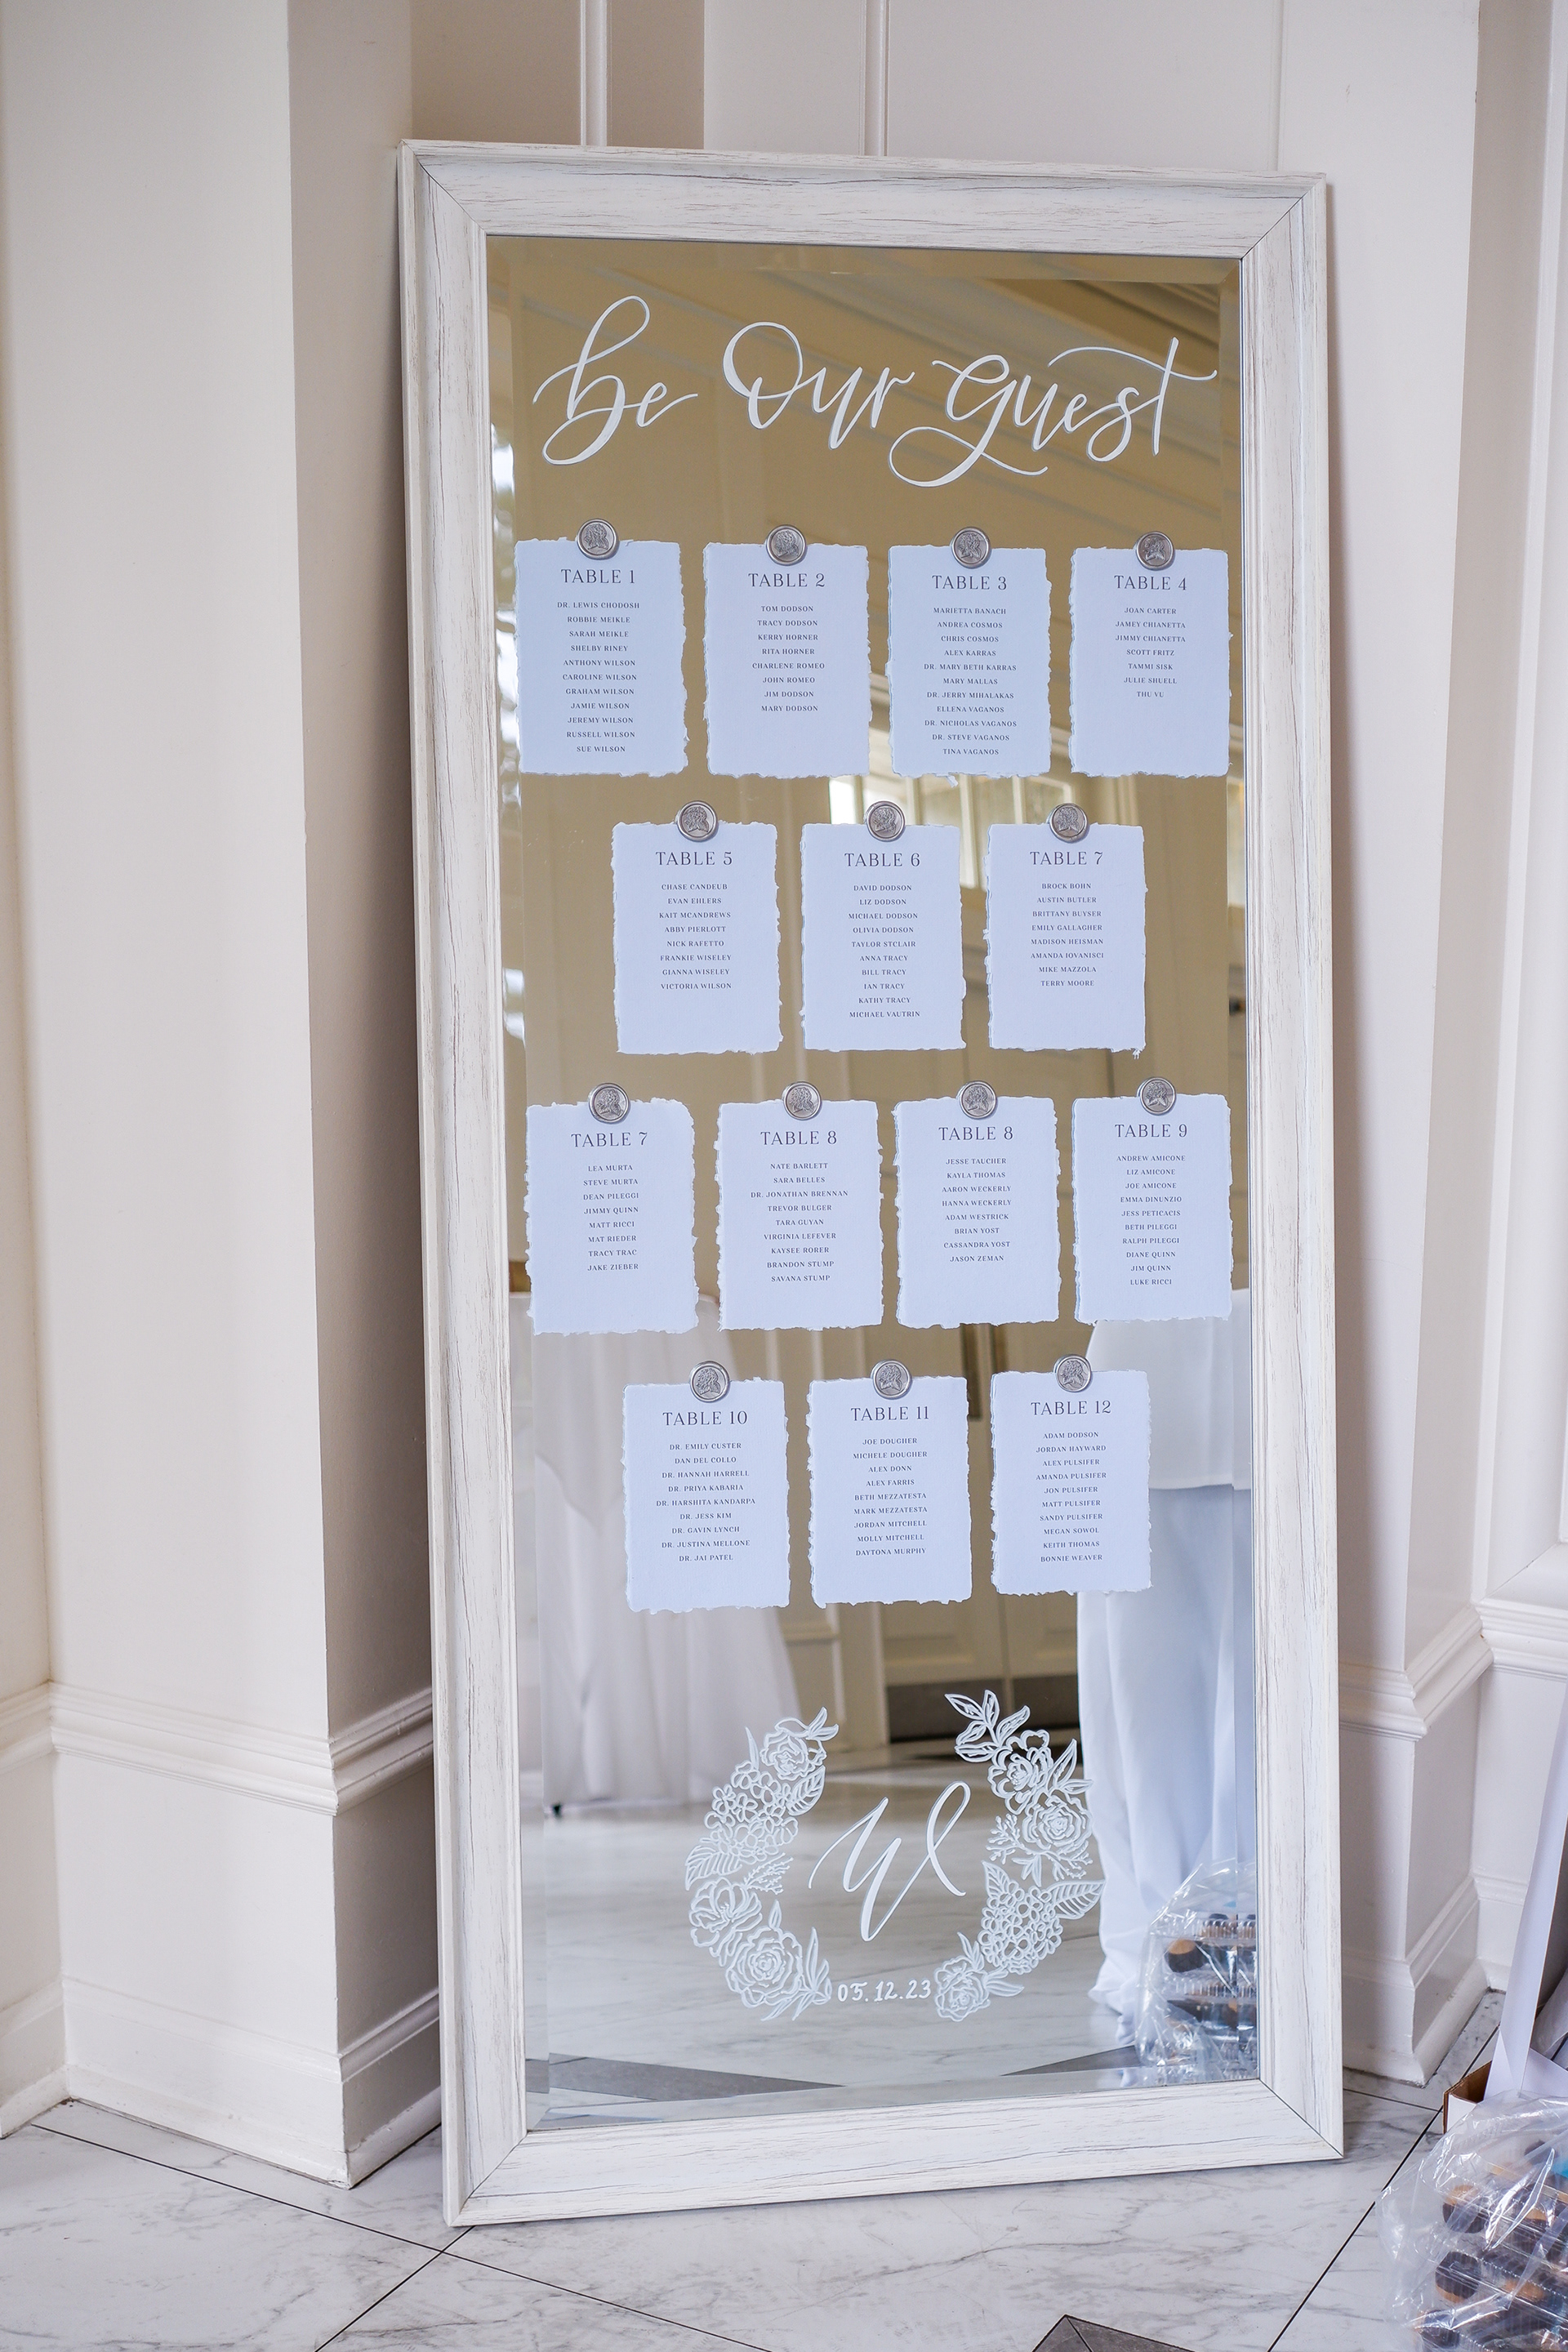 be Our guest
TABLE 1
DR. LEWIS CHODOSH
ROBBIE MEIKLE
SARAH MEIKLE
SHELBY RINEY
ANTHONY WILSON
CAROLINE WILSON
GRAHAM WILSON
JAMIE WILSON
JEREMY WILSON
RUSSELL WILSON
SUE WILSON
TABLE 2
TOM DODSON
TRACY DODSON
KERRY HORNER
RITA HORNER
CHARLENE ROMEO
JOHN ROMEO
JIM DODSON
MARY DODSON
TABLE 3
MARIETTA BANACH
ANDREA COSMOS
CHRIS COSMOS
ALEX KARRAS
DR. MARY BETH KARRAS
MARY MALLAS
DR. JERRY MIHALAKAS
ELLENA VAGANOS
DR. NICHOLAS VAGANOS
DR. STEVE VAGANOS
TINA VAGANOS
TABLE 4
JOAN CARTER
JAMEY CHIANETTA
JIMMY CHIANETTA
SCOTT FRITZ
TAMMI SISK
JULIE SHUELL
THU VU
TABLE 5
CHASE CANDEUB
EVAN EHLERS
KAIT MCANDREWS
ABBY PIERLOTT
NICK RAFETTO
FRANKIE WISELEY
GIANNA WISELEY
VICTORIA WILSON
TABLE 6
DAVID DODSON
LIZ DODSON
MICHAEL DODSON
OLIVIA DODSON
TAYLOR STCLAIR
ANNA TRACY
BILL TRACY
IAN TRACY
KATHY TRACY
MICHAEL VAUTRIN
TABLE 7
BROCK BOHN
AUSTIN BUTLER
BRITTANY BUYSER
EMILY GALLAGHER
MADISON HEISMAN
AMANDA IOVANISCI
MIKE MAZZOLA
TERRY MOORE
TABLE 7
LEA MURTA
STEVE MURTA
DEAN PILEGGI
JIMMY QUINN
MATT RICCI
MAT RIEDER
TRACY TRAC
JAKE ZIEBER
TABLE 8
NATE BARLETT
SARA BELLES
DR. JONATHAN BRENNAN
TREVOR BULGER
TARA GUYAN
VIRGINIA LEFEVER
KAYSEE RORER
BRANDON STUMP
SAVANA STUMP
TABLE 8
JESSE TAUCHER
KAYLA THOMAS
AARON WECKERLY
HANNA WECKERLY
ADAM WESTRICK
BRIAN YOST
CASSANDRA YOST
JASON ZEMAN
TABLE 9
ANDREW AMICONE
LIZ AMICONE
JOE AMICONE
EMMA DINUNZIO
JESS PETICACIS
BETH PILEGGI
RALPH PILEGGI
DIANE QUINN
JIM QUINN
LUKE RICCI
TABLE 10
DR. EMILY CUSTER
DAN DEL COLLO
DR. HANNAH HARRELL
DR. PRIYA KABARIA
DR. HARSHITA KANDARPA
DR. JESS KIM
DR. GAVIN LYNCH
DR. JUSTINA MELLONE
DR. JAI PATEL
TABLE 11
JOE DOUGHER
MICHELE DOUGHER
ALEX DONN
ALEX FARRIS
BETH MEZZATESTA
MARK MEZZATESTA
JORDAN MITCHELL
MOLLY MITCHELL
DAYTONA MURPHY
TABLE 12
ADAM DODSON
JORDAN HAYWARD
ALEX PULSIFER
AMANDA PULSIFER
JON PULSIFER
MATT PULSIFER
SANDY PULSIFER
MEGAN SOWOL
KEITH THOMAS
BONNIE WEAVER
W
05.12.23